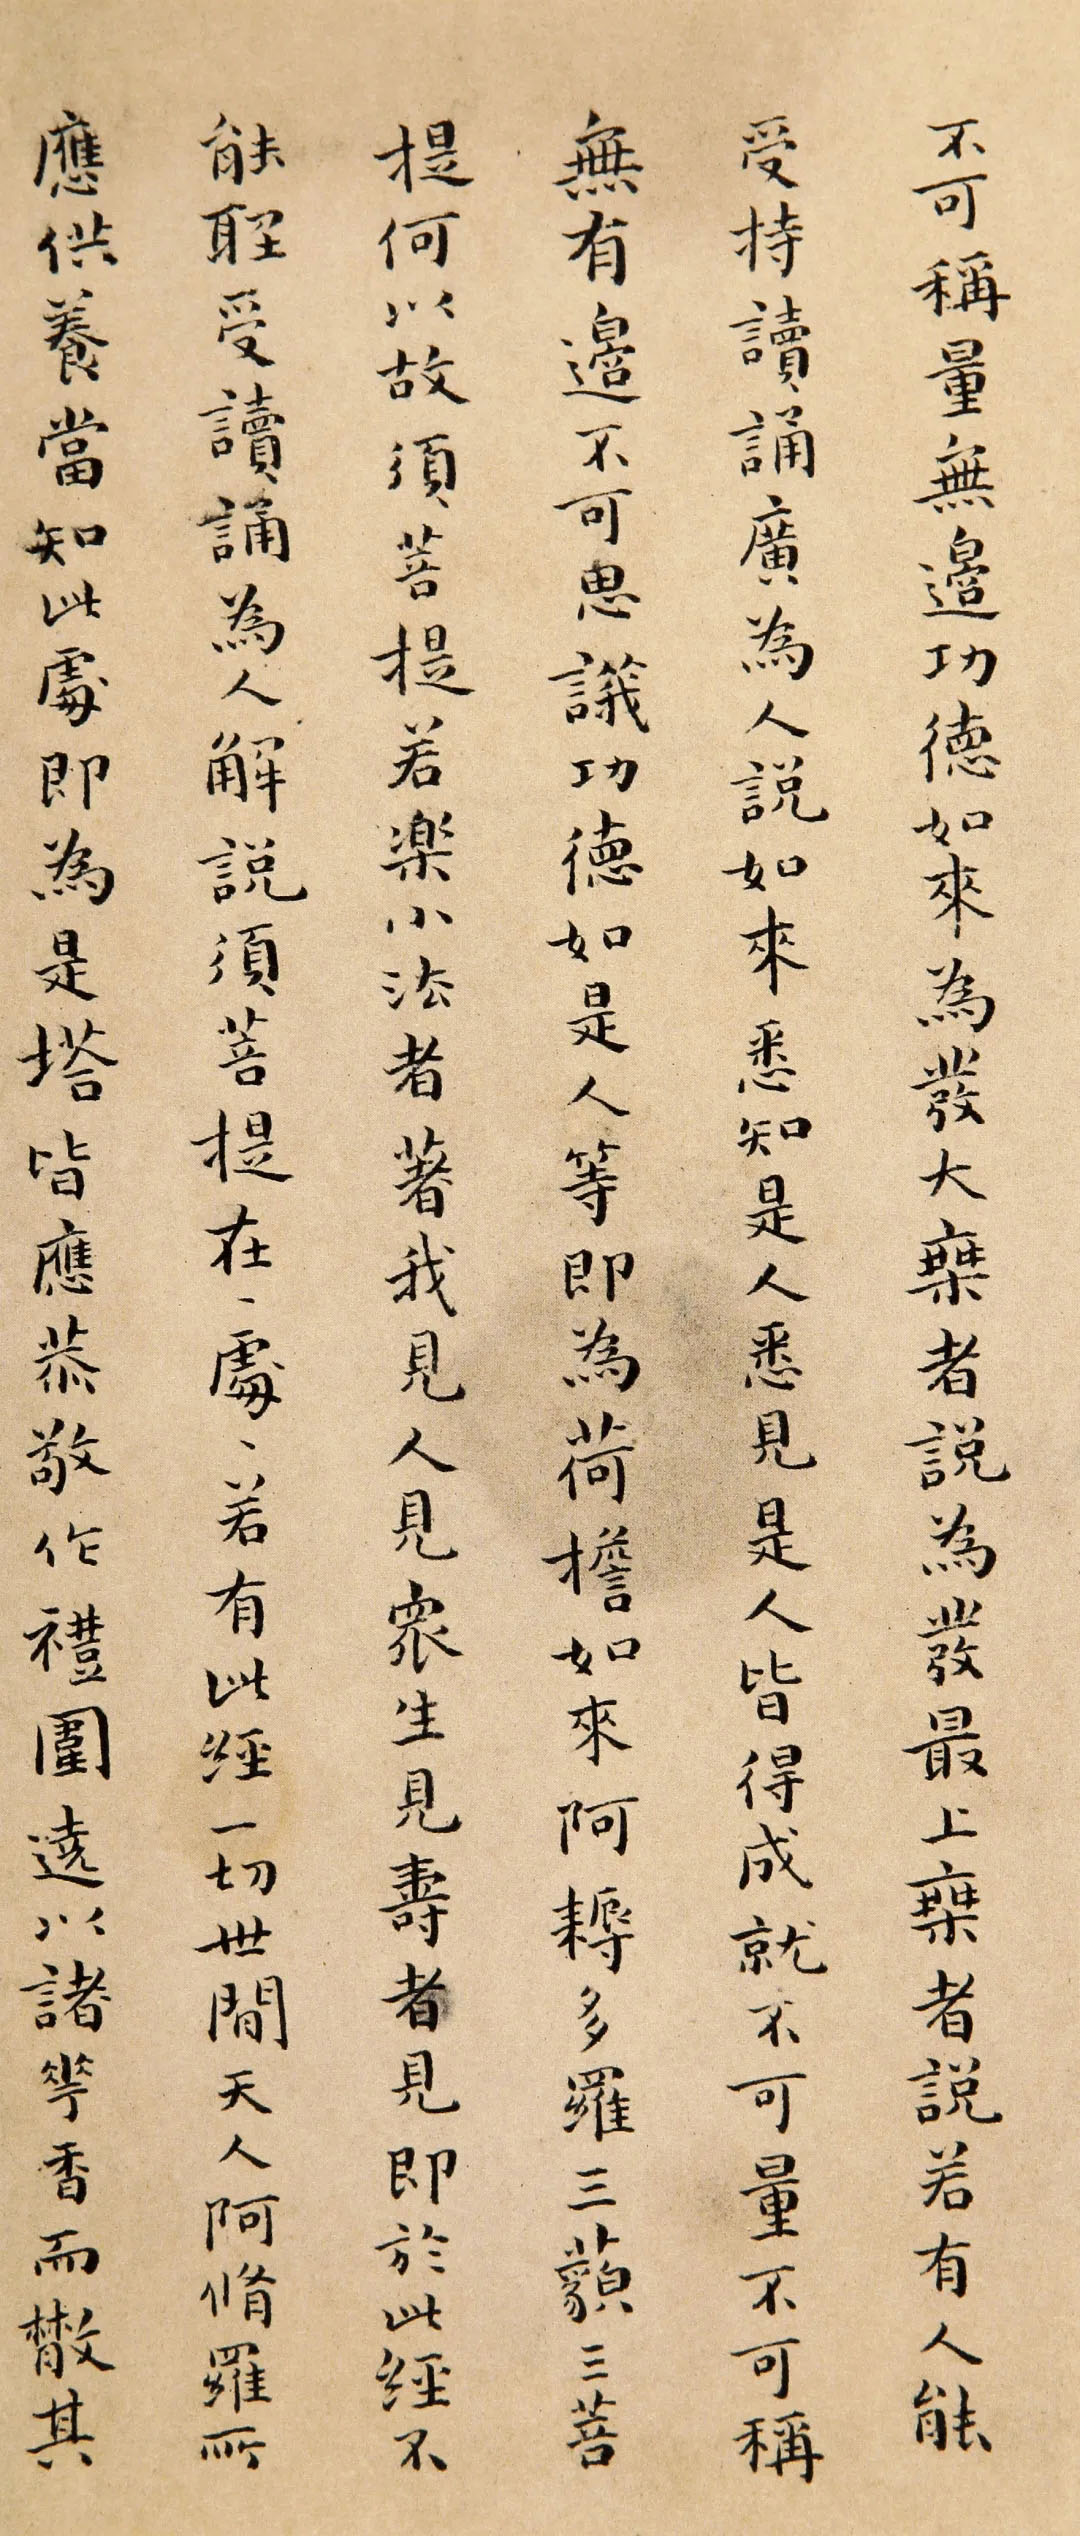 不可稱量無邊功德如來為發大乗者說為發最上乗者說若有人能
受持讀誦廣為人說如來悉知是人悉見是人皆得成就不可量不可稱
無有邊不可思議功德如是人等即為荷擔如來阿耨多羅三藐三菩
提何以故須菩提若楽小法者著我見人見衆生見壽者見即於此經不
能聽受讀誦為人解說須菩提在〻處〻若有此經一切世間天人阿脩羅所
應供養當知此處即為是塔皆應恭敬作禮圍遶以諸華香而散其